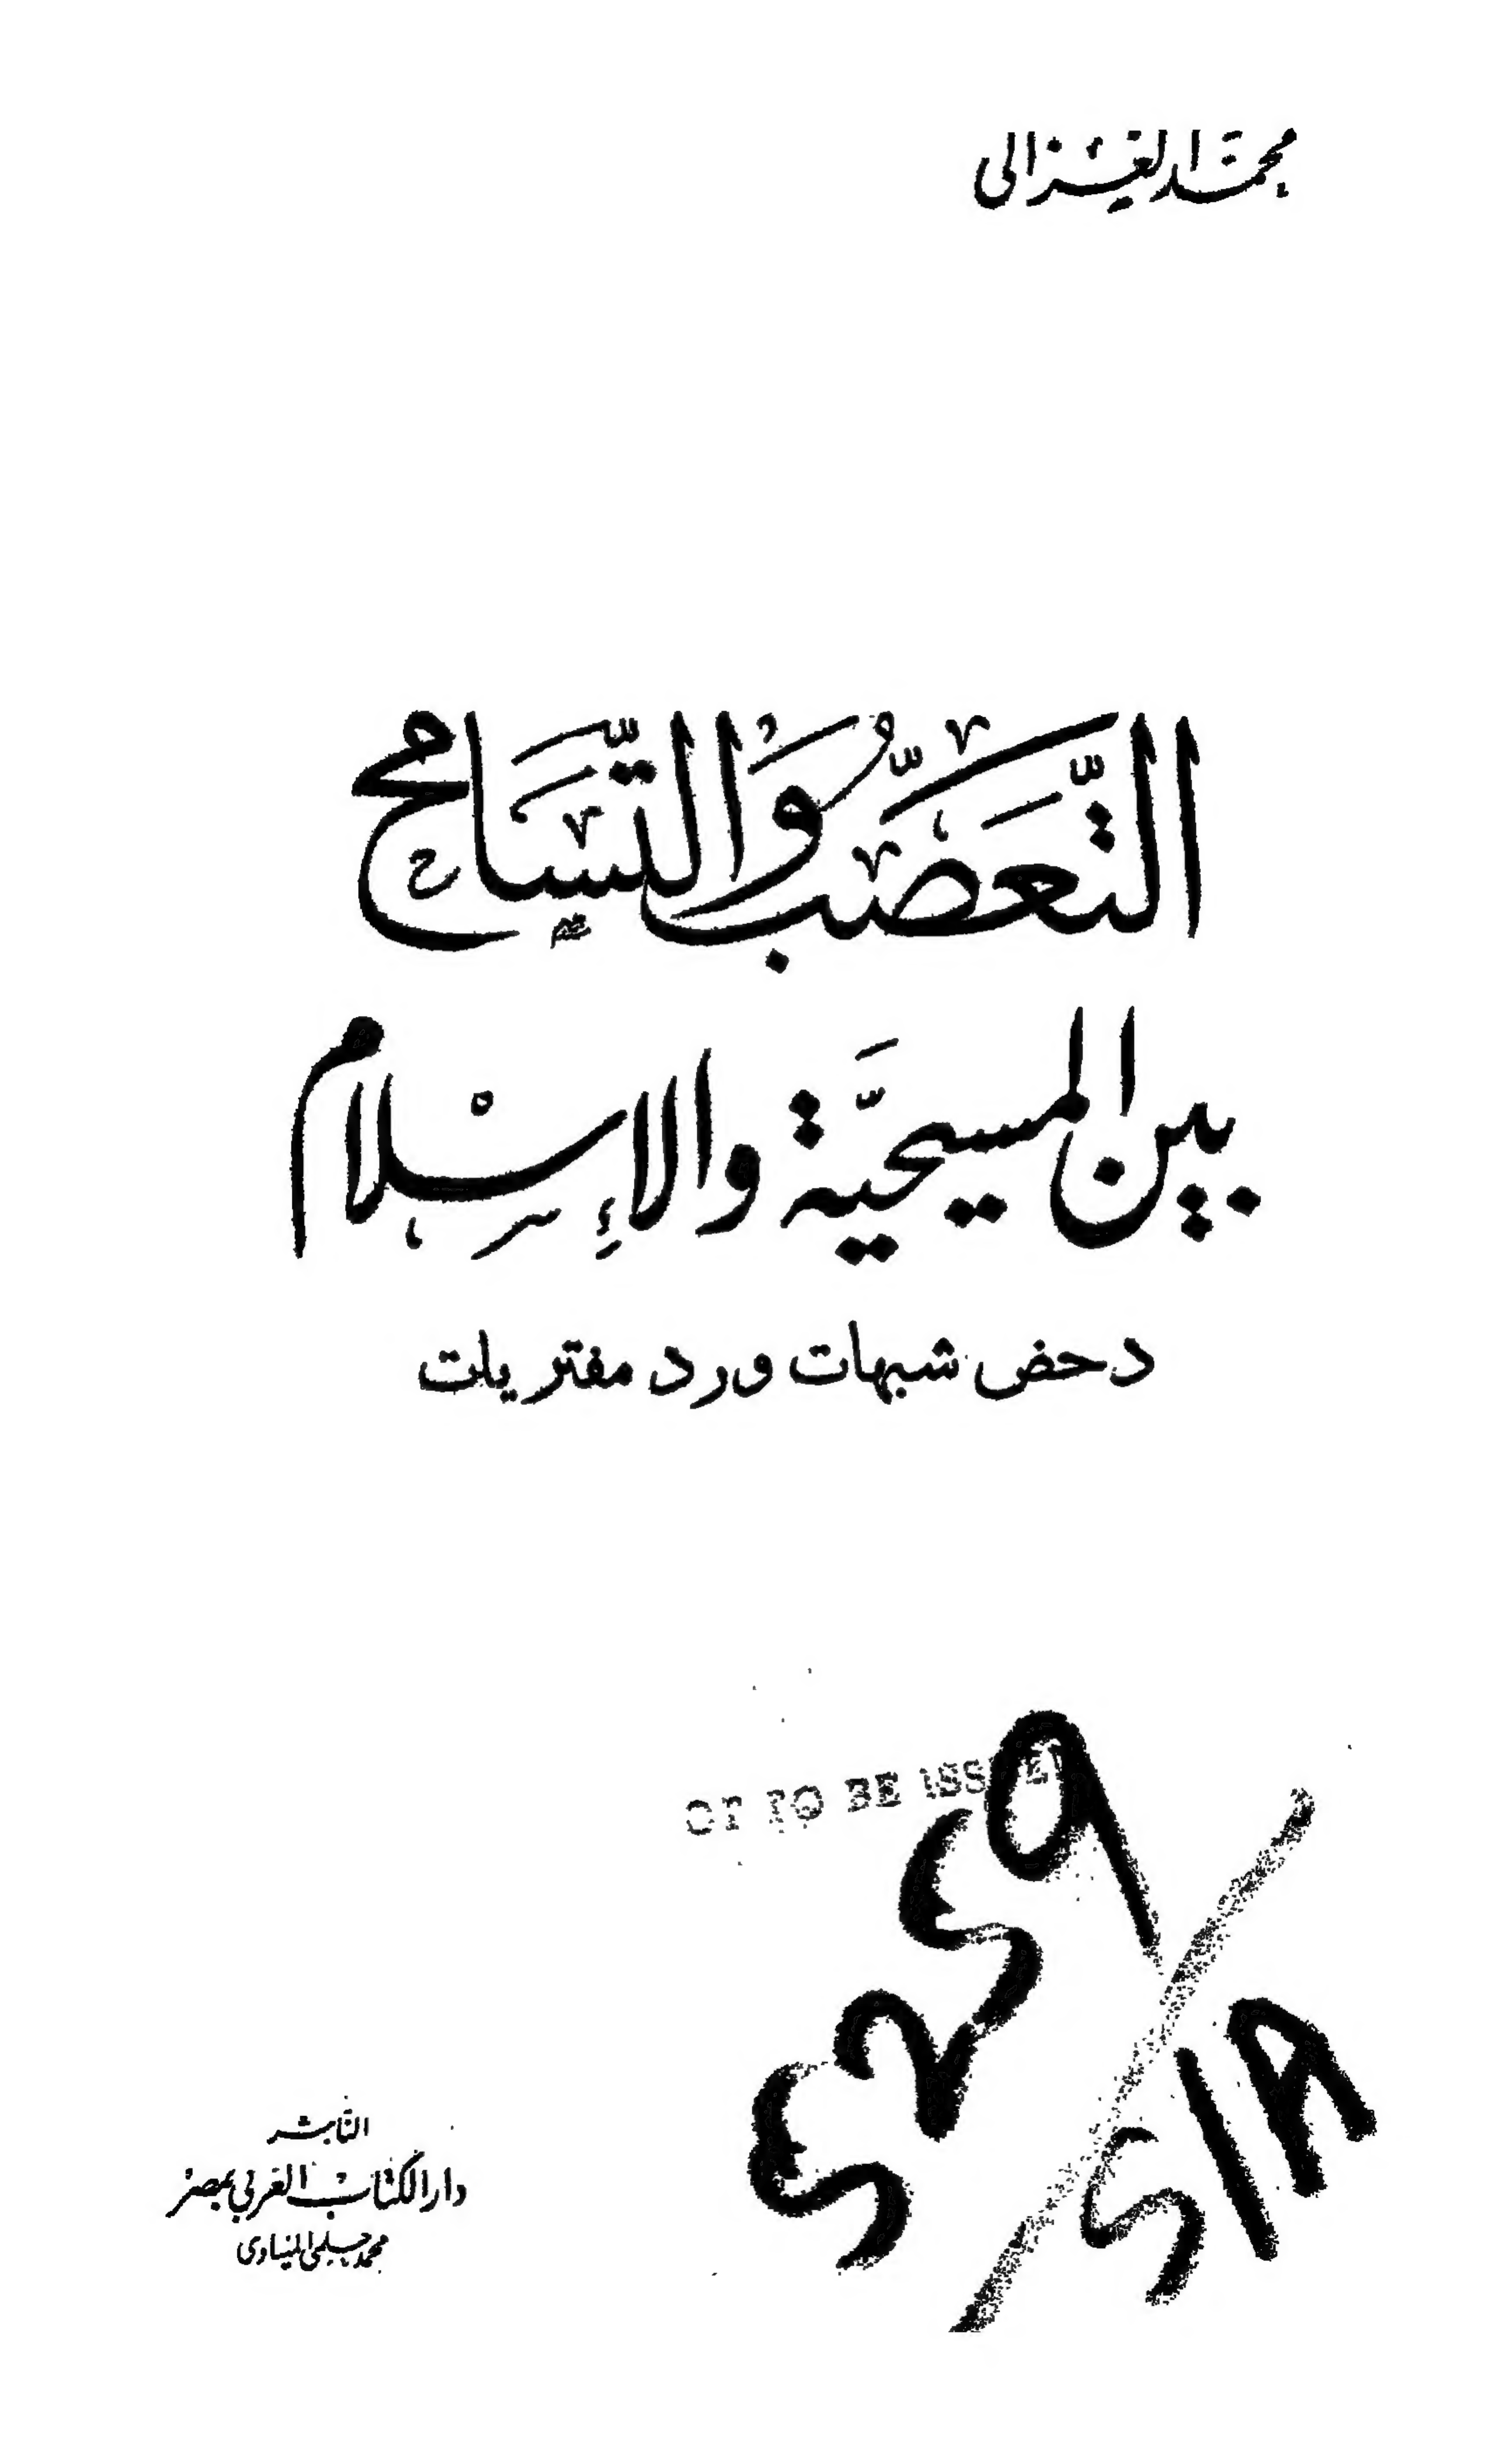 محمد الغزالى
التَّعَصُّبُ وَالتَّسَامح
بين المسيحيَّة والإِسْلام
دحض شبهات ورد مفتريات
OT TO BE ISS
٤٢٤٩
٤١٨
الناشر
دار الكتاب العربي بمصر
محمد حلمي المنياوى